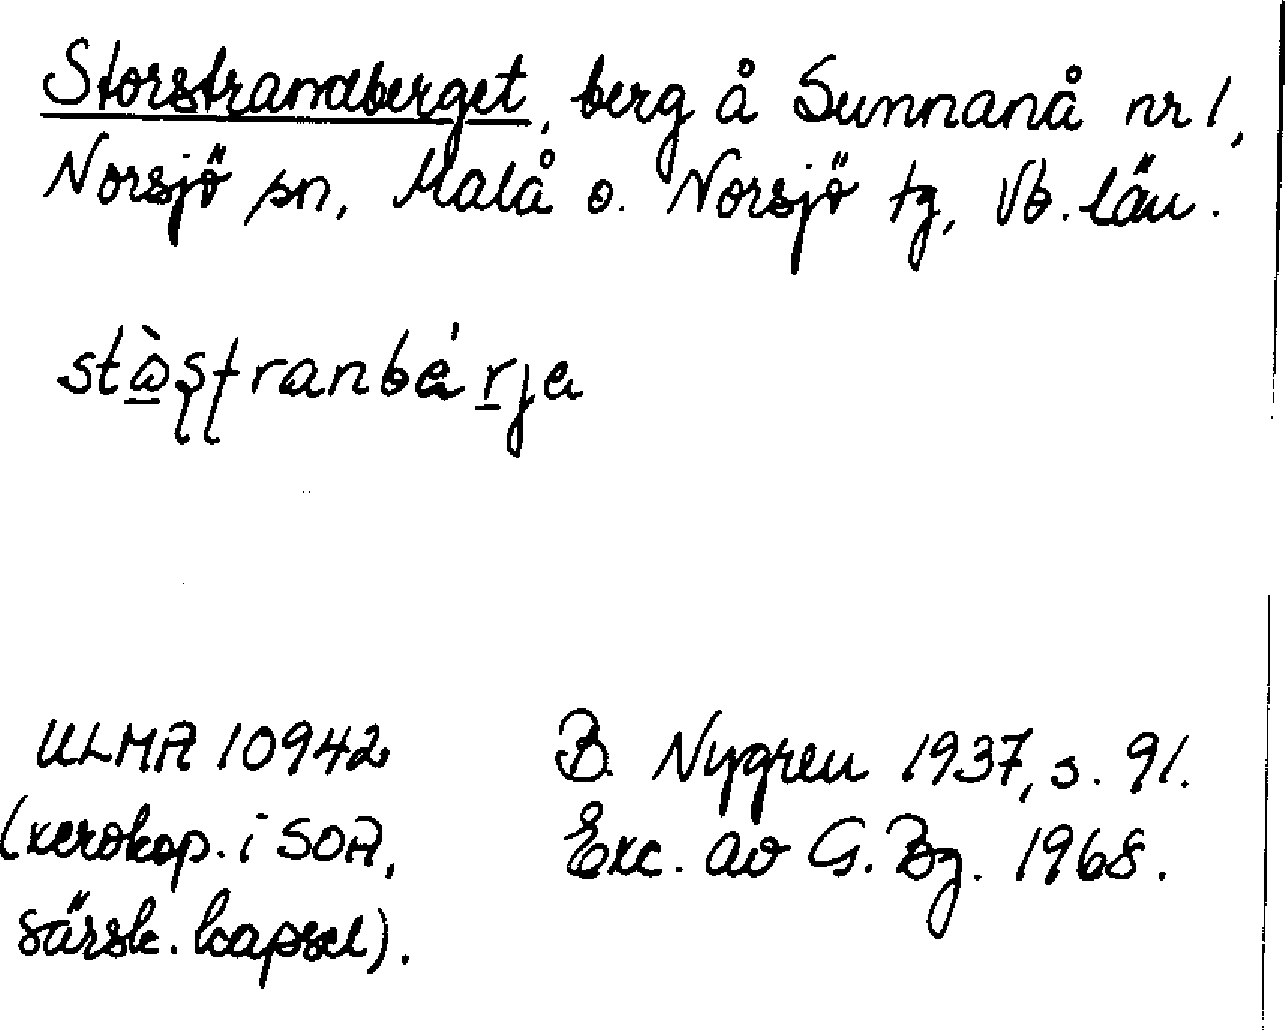 Storstrandberget, berg å Sunnanå nr 1,
Norsjö sn, Malå o. Norsjö tg, Vb. län.
stò̠ʂʈranbér̠ja
ULMA 10942
(xerokop. i SOA,
särsk. kapsel).
B. Nygren 1937, s. 91.
Exc. av G. Bg. 1968.